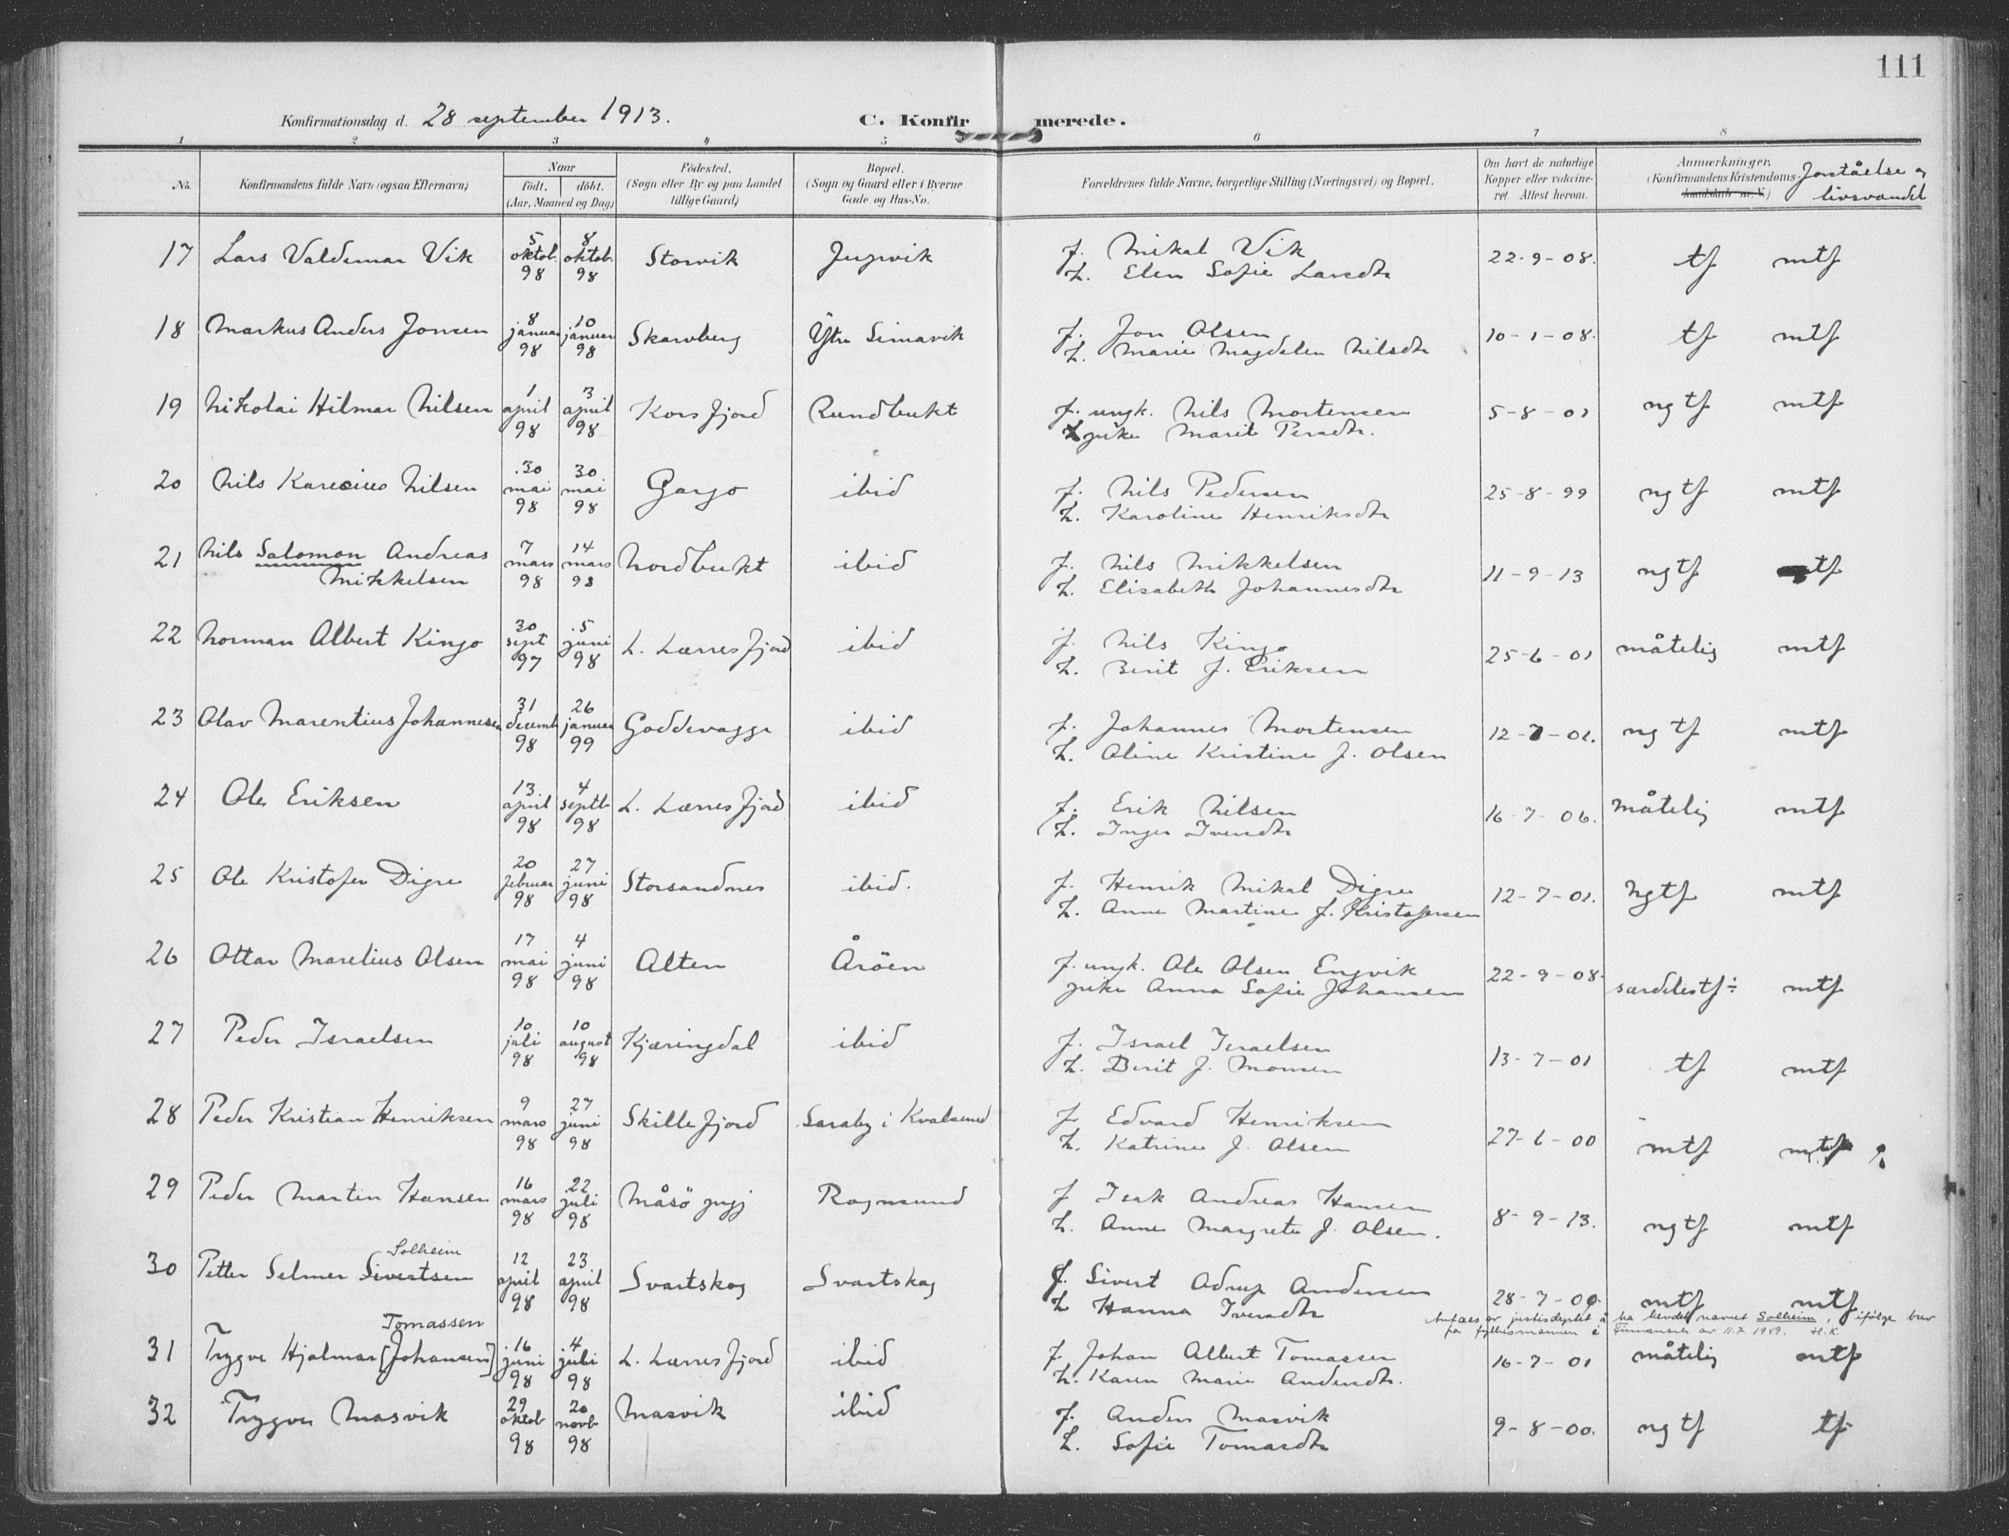 111
Konfirmationsdag d. 28 september 1913. C. Konfirmerede.
1 2 3 4 5 6 7 8
No. Konfirmandens fulde Navn (ogsaa Efternavn) Naar født. døbt. (Aar, Maaned og Dag) Fødested. (Sogn eller By og paa Landet tillige Gaard) Bopæl. (Sogn og Gaard eller i Byerne Gade og Hus-No. Forældrenes fulde Navne, borgerlige Stilling (Næringsvei) og Bopæl. Om havt de naturlige Kopper eller vakcineret Attest herom. Anmærkninger. (Konfirmandens Kristendomskundskab m. V.) forståelse og livsvandel
17 Lars Valdemar Vik 5 oktob. 98 8 oktob. 98 Storvik Jupvik f. Mikal Vik 22-9-08. tf mtf
h. Elen Sofie Larsdtr
18 Markus Anders Jonsen 8 januar 98 10 januar 98 Skarvberg Ytre Simavik f. Jon Olsen 10-1-08. tf mtf
h. Marie Magdalen Nilsdtr
19 Nikolai Hilmar Nilsen 1 april 98 3 april 98 Korsfjord Rundbukt f. ungk. Nils Mortensen 5-8-01 ngtf mtf
pike Marit Persdtr.
20 Nils Karecius Nilsen 30 mai 98 30 mai 98 Gargo ibid f. Nils Pedersen 25-8-99 ngtf mtf
h. Karoline Henriksdtr
21 Nils Salomon Andreas 7 mars 98 14 mars 98 Nordbukt ibid f. Nils Mikkelsen 11-9-13 ngtf tf
Mikkelsen h. Elisabeth Johannesdtr
22 Norman Albert Kingo 30 sept 97 5 juni 98 L. Lerresfjord ibid f. Nils Kingo 25-6-01 måtelig mtf
h. Berit f. Eriksen
23 Olav Marentius Johannesen 31 decemb 98 26 januar 99 Goddevagge ibid f. Johannes Mortensen 12-7-01. ngtf mtf
h. Oline Kristine f. Olsen
24 Ole Eriksen 13 april 98 4 septb. 98 L. Lerresfjord ibid f. Erik Nilsen 16-7-06. måtelig mtf
h. Inger Iversdtr
25 Ole Kristofer Digre 20 februar 98 27 juni 98 Storsandnes ibid. f. Henrik Mikal Digre 12-7-01. ngtf mtf
h. Anne Martine f. Kristofersen
26 Ottar Marelius Olsen 17 mai 98 4 juni 98 Alten Åröen f. ungk. Ole Olsen Engvik 22-9-08. særdelestf÷ mtf
pike Anna Sofie Johansen
27 Peder Israelsen 10 juli 98 10 august 98 Kjæringdal ibid f. Israel Israelsen 13-7-01 tf mtf
h. Berit f. Monsen
28 Peder Kristian Henriksen 9 mars 98 27 juni 98 Skillefjord Saraby i Kvalsund f. Edvard Henriksen 27-6-00 mtf mtf
h. Katrine f. Olsen
29 Peder Martin Hansen 16 mars 98 22 juli 98 Måsö prgj Rognsund f. Isak Andreas Hansen 8-9-13. ngtf mtf
h. Anne Margrete f. Olsen.
Solheim
30 Petter Selmer Sivertsen 12 april 98 23 april 98 Svartskog Svartskog f. Sivert Adrup Andersen 28-7-00. mtf mtf
h Hanna Iversdtr
Antaes av justisdeptet å ha hevdet navnet Solheim, ifølge brev
fra fylkesmannen i Finnmark av 11.7.1949. H.K.
Tomassen
31 Trygve Hjalmar [Johansen] 16 juni 98 4 juli 98 L. Lerresfjord ibid f. Johan Albert Tomassen 16-7-01 måtelig mtf
h. Karen Marie Andersdtr.
32 Trygve Masvik 29 oktob 98 20 novb. 98 Masvik ibid f. Anders Masvik 9-8-00. ngtf tf
h. Sofie Tomasdtr